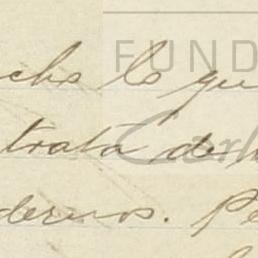 FUND
cho lo qu
trata de
dernos. Pe